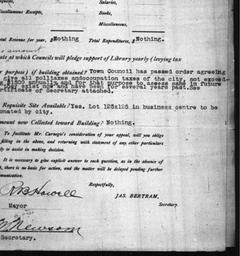 Salaries,
Miscellaneous Receipts,
Miscellaneous,
Total Revenue for year, Nothing Total Expenditure, Nothing.
amount
rate at which Council will pledge support of Library yearly (levying tax
purpose) if building obtained? Town Council has passed order agreeing
all polltaxes and occupation taxes of the city, not exceed-
annually and for that purpose to assess and in future
exist now and have been for several years past. See
certificate of Secretary attached.
Requisite Site Available? Yes. Lot 125x125 in business centre to be
donated by city.
amount now Collected toward Building? Nothing.
To facilitate Mr. Carnegie's consideration of your appeal, will you oblige
filling in the above, and returning with statement of any other particulars
to assist in making decision.
It is necessary to give explicit answer to each question, as in the absence of
there is no basis for action, and the matter will be delayed pending further
communication.
Respectfully,
JAS. BERTRAM,
Mayor Secretary.
Newsom
Secretary.